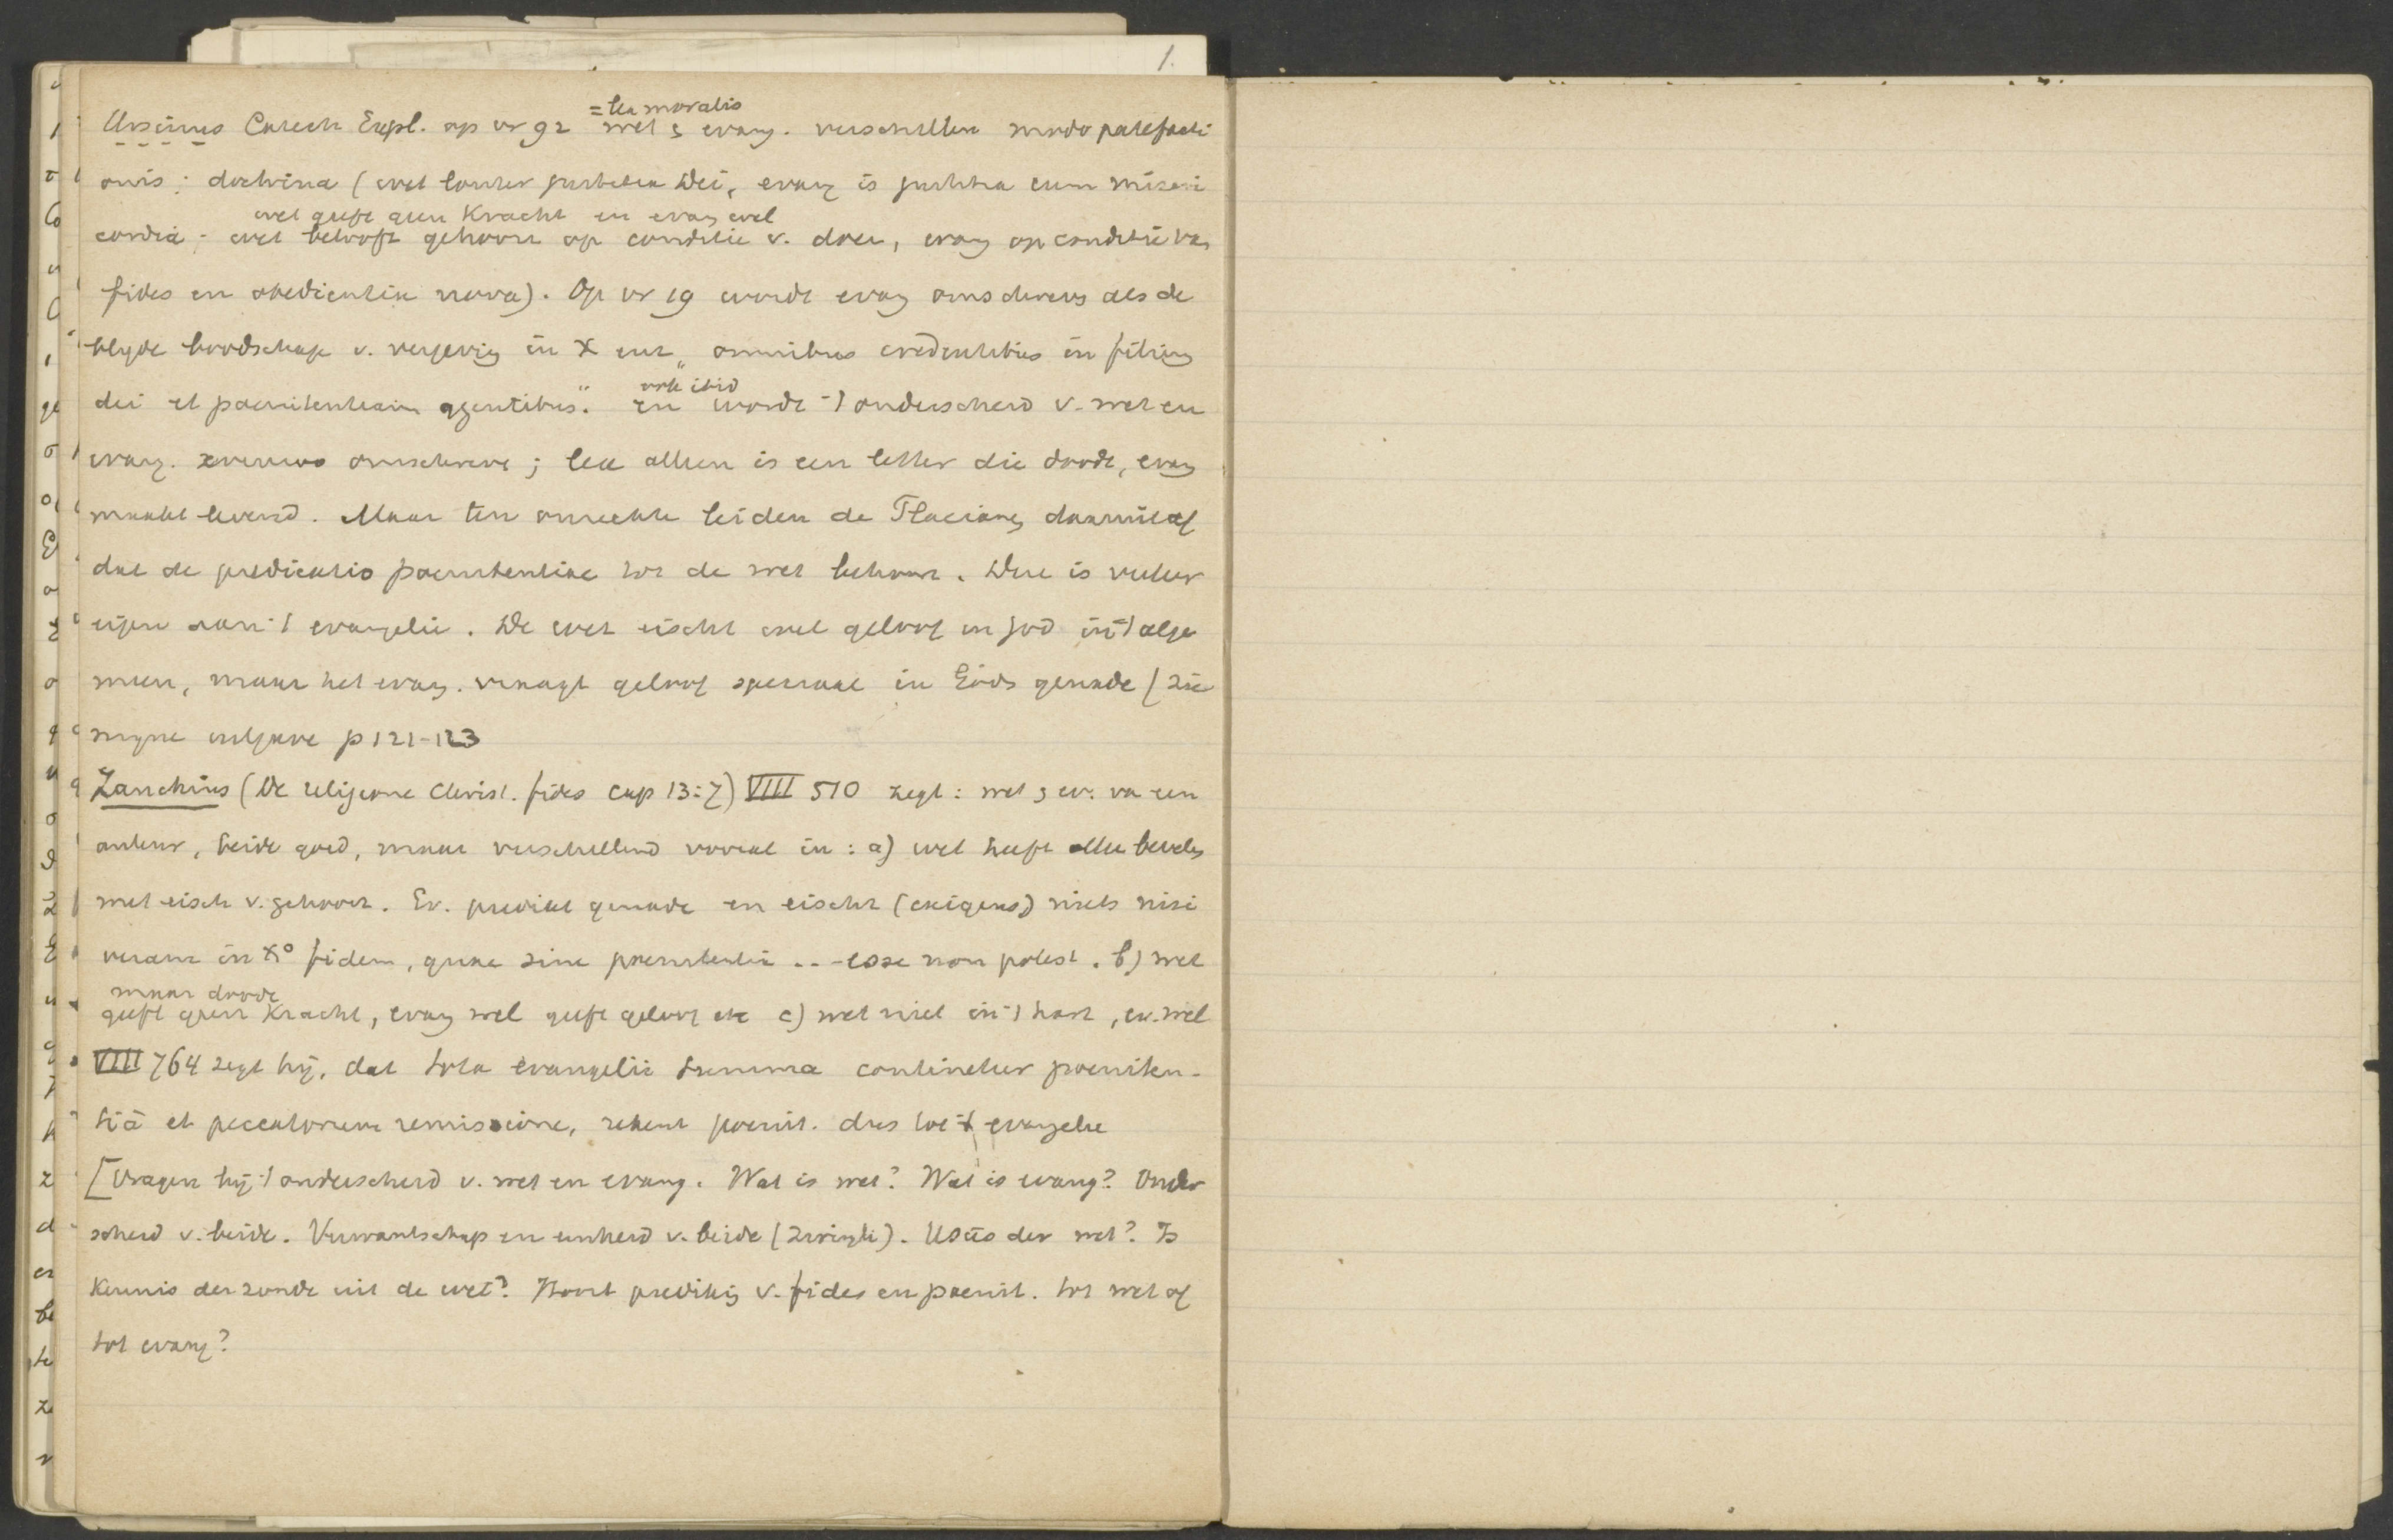 1.
= lex moralis
Ursinus Catech Expl. op vr 92 wet & evang. verschillen modo patefacti
onis; doctrina (wet louter justitia Dei, evang is justitia cum miseri
wet geeft geen Kracht en evang wel
cordia; wet belooft gehoorz op conditie v. doen, evang op conditie van
fides en obedientia nova). Op vr 19 wordt evang omschreven als de
blyde boodschap v. vergeving in X enz „omnibus credentibus in filium
ook ibid
dei et poenitentiam agentibus." en wordt 't onderscheid v. wet en
evang. omschreven; lex alleen is een letter die doodt, evang
maakt levend. Maar ten onrechte leiden de Flacianen daaruit af
dat de predicatio poenitentiae tot de wet behoort. Deze is veeleer
eigen aan 't evangelie. De wet eischt wel geloof in God in 't alge
meen, maar het evang. vraagt geloof speciaal in Gods genade (zie
myne uitgave p 121-123
Zanchius (De religione Christ. fides cap 13:7) VIII 510 zegt: wet & ev. van een
auteur, beide goed, maar verschillend vooral in: a) wet heeft alleen bevelen
met eisch v. gehoorz. Ev. predikt genade en eischt (exigens) niets nisi
veram in Xº fidem, quae sine poenitentia ... esse non potest. b) wet
maar doodt
geeft geen Kracht, evang wel geeft geloof etc c) wet niet in 't hart, ev. wel
VIII 764 zegt hij, dat tota evangelii summa continetur poeniten-
tiâ et peccatorum remissione, rekent poenit. dus tot 't evangelie
[Vragen bij 't onderscheid v. wet en evang. Wat is wet? Wat is evang? Onder
scheid v. beide. Verwantschap en eenheid v. beide (Zwingli). Usus der wet? Is
Kennis der zonde uit de wet? Hoort prediking v. fides en poenit. tot wet of
tot evang?